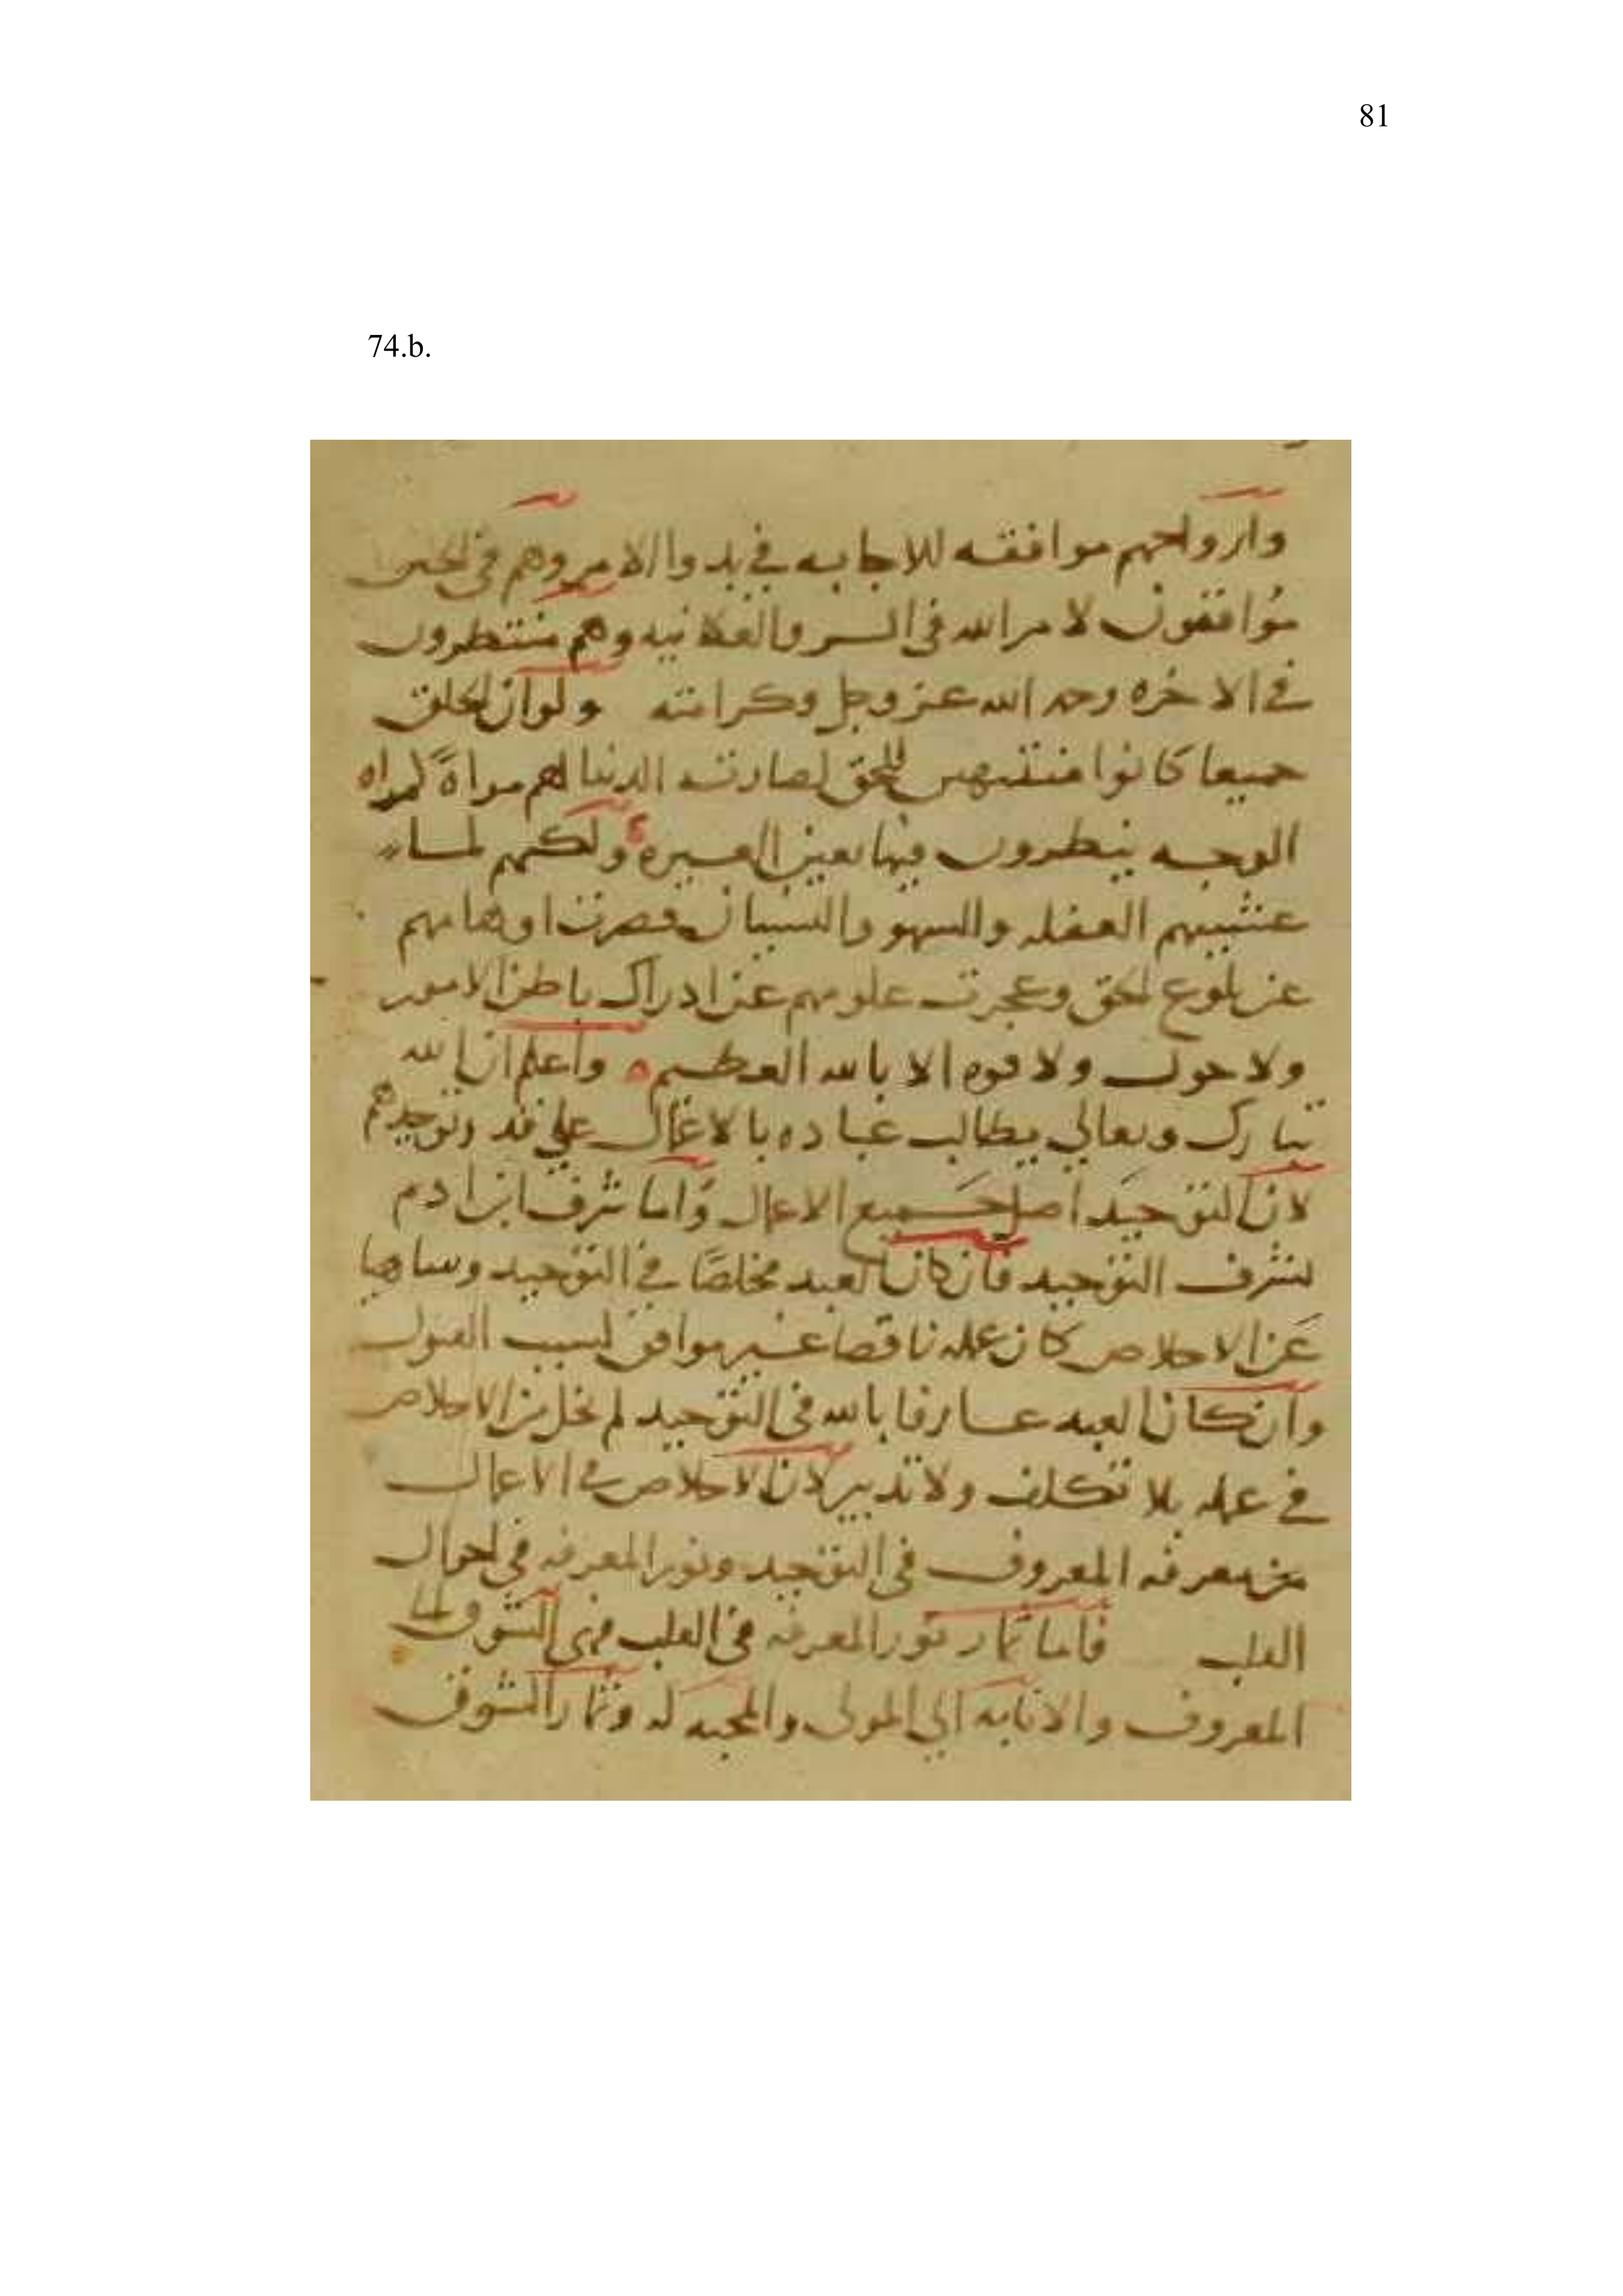 81
74.b.
وارواحهم موافقه للاجابه في بدوا الامر وهم في
موافقون لامر الله في السر والعلانيه وهم منتظرون
في الاخره وجه الله عز وجل وكرامته ولو ان الخلق
جميعا كانوا منتبهين للحق لصارت الدنيا لهم مراة كمراه
الوجه ينظرون فيها بعين العبره ولكنهم لما
غشيتهم الغفله والسهو والنسيان قصرت اوهامهم
عن بلوغ الحق وعجزت علومهم عن ادراك باطن الامور
ولا حول ولا قوه الا بالله العظيم واعلم ان الله
تبارك وتعالي يطالب عباده بالاعمال علي قدر توحيدهم
لان التوحيد اصل جميع الاعمال واما شرف ابن ادم
لشرف التوحيد فان كان العبد مخلصا في التوحيد وساهيا
عن الاخلاص كان عمله ناقصا غير موافق لسبب القبول
وان كان العبد عارفا بالله في التوحيد لم يخل من الاخلاص
في عمله بلا تكلف ولا تدبير لان الاخلاص في الاعمال
من معرفه المعروف في التوحيد ونور المعرفه في احوال
القلب فاما ثمار نور المعرفه في القلب فهي الشوق الى
المعروف والانابه الي المولى والمحبه له وثمار الشوق